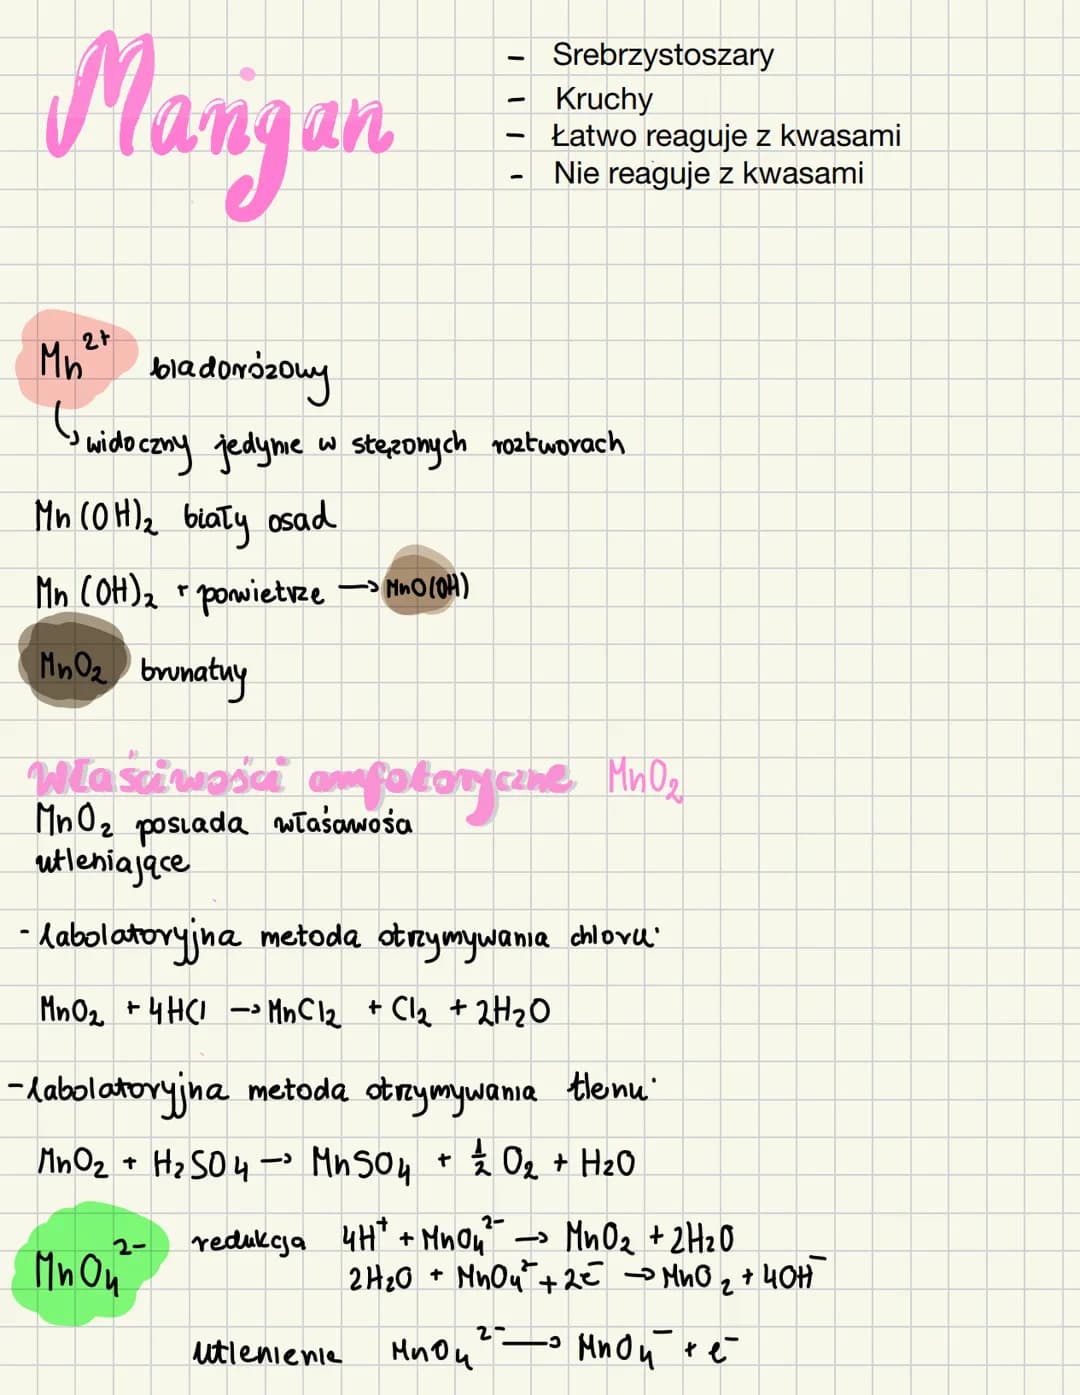 Mangan
- Srebrzystoszary
- Kruchy
- Łatwo reaguje z kwasami
- Nie reaguje z kwasami
Mn²⁺ bladoróżowy
↳ widoczny jedynie w stężonych roztworach
Mn(OH)₂ biały osad
Mn(OH)₂ + powietrze → MnO(OH)
MnO₂ brunatny
Właściwości amfoteryczne MnO₂
MnO₂ posiada właściwości
utleniające
- labolatoryjna metoda otrzymywania chloru:
MnO₂ + 4HCl → MnCl₂ + Cl₂ + 2H₂O
- labolatoryjna metoda otrzymywania tlenu:
MnO₂ + H₂SO₄ → MnSO₄ + ½ O₂ + H₂O
MnO₄²⁻ redukcja 4H⁺ + MnO₄²⁻ → MnO₂ + 2H₂O
2H₂O + MnO₄²⁻ + 2e⁻ → MnO₂ + 4OH⁻
utlenienie MnO₄²⁻ → MnO₄⁻ + e⁻